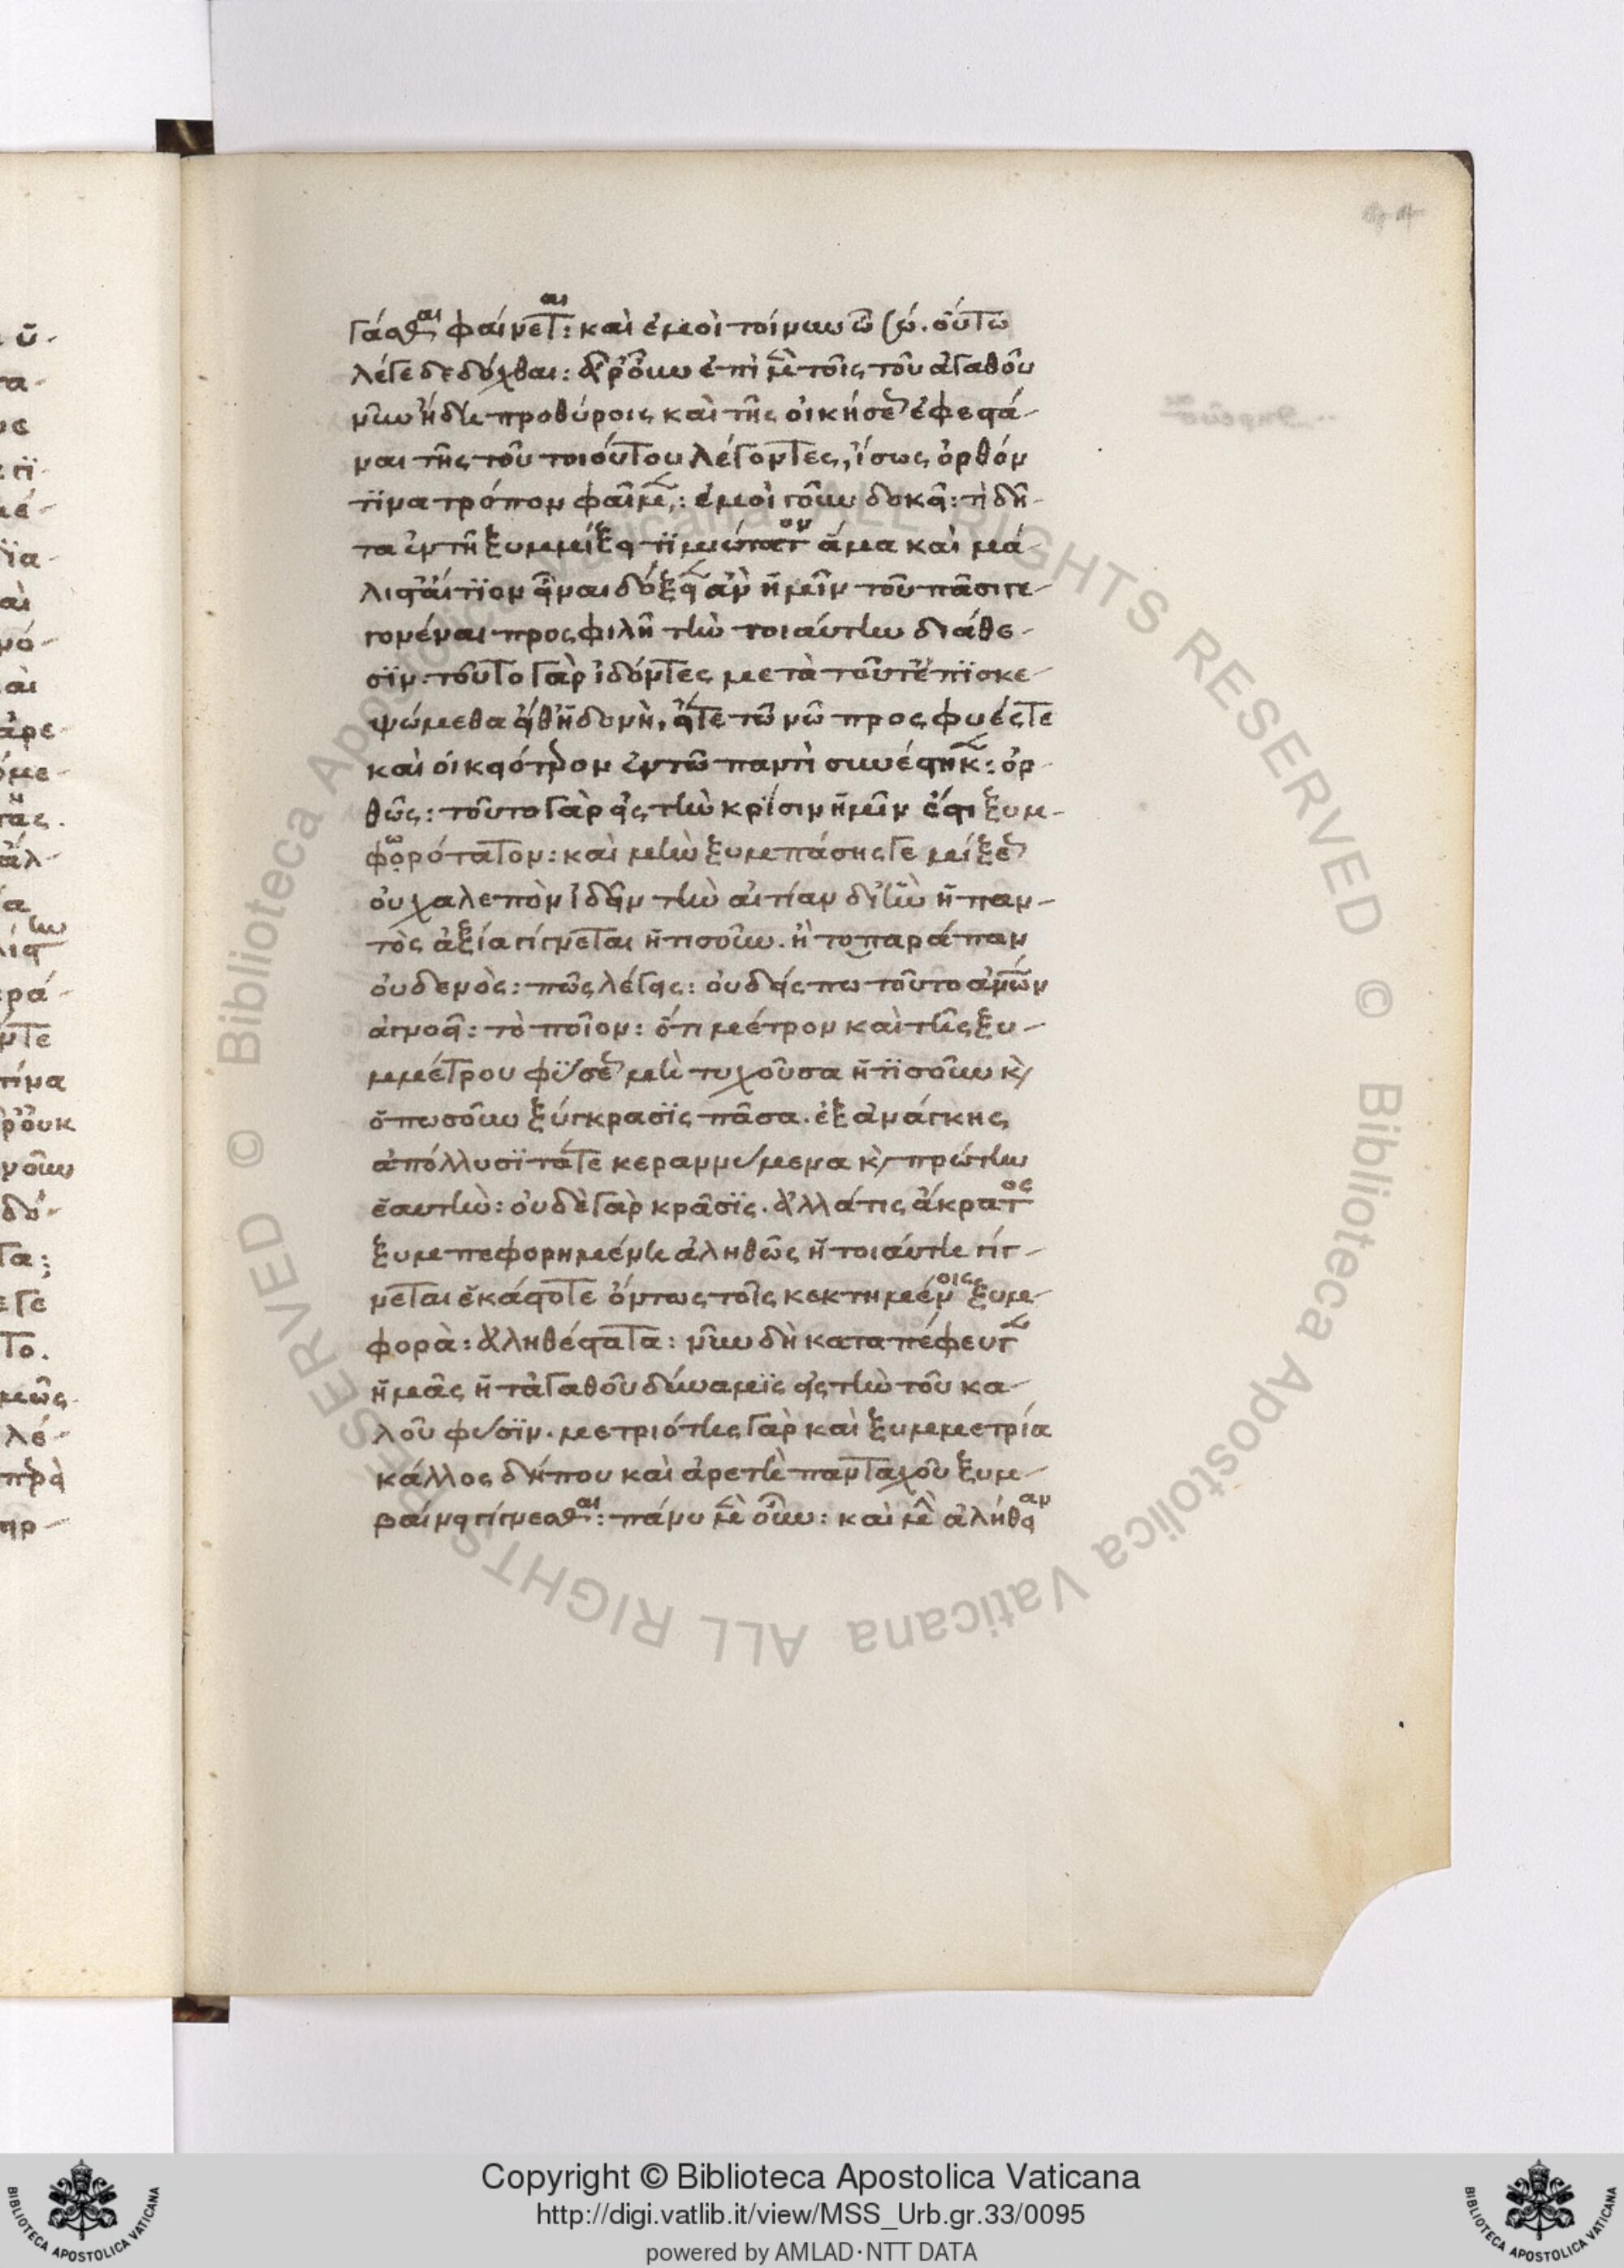 γάσθαι φαίνεται: καὶ ἐμοὶ τοίνυν ὦ σώ. οὕτω
λέγε δεδόχθαι: ἆρ' οὖν ἐπὶ μὲν τοῖς τοῦ ἀγαθοῦ
νῦν ἤδη προθύροις καὶ τῆς οἰκήσεως ἐφεστά-
ναι τῆς τοῦ τοιούτου λέγοντες, ἴσως ὀρθόν
τινα τρόπον φαῖμεν: ἐμοὶ γοῦν δοκεῖ: τί δῆ-
τα ἐν τῇ ξυμμίξει τιμιώτατον ἅμα καὶ μά-
λιστ' αἴτιον εἶναι δόξειεν ἂν ἡμῖν τοῦ πᾶσι γε-
γονέναι προσφιλῆ τὴν τοιαύτην διάθε-
σιν. τοῦτο γὰρ ἰδόντες μετὰ τοῦτ' ἐπισκε-
ψώμεθα εἴθ' ἡδονῇ, εἴτε τῷ νῷ προσφυές τε
καὶ οἰκειότερον ἐν τῷ παντὶ συνέστηκεν: ὀρ-
θῶς: τοῦτο γὰρ εἰς τὴν κρίσιν ἡμῖν ἐστι ξυμ-
φορώτατον: καὶ μὴν ξυμπάσης γε μείξεως
οὐ χαλεπὸν ἰδεῖν τὴν αἰτίαν δι' ἣν ἢ παν-
τὸς ἀξία γίγνεται ἡτισοῦν. ἢ τὸ παράπαν
οὐδενός: πῶς λέγεις: οὐδείς που τοῦτο ἀνθρώπων
ἀγνοεῖ: τὸ ποῖον: ὅτι μέτρου καὶ τῆς ξυ-
μμέτρου φύσεως μὴ τυχοῦσα ἡτισοῦν καὶ
ὁπωσοῦν ξύγκρασις πᾶσα. ἐξ ἀνάγκης
ἀπόλλυσι τά τε κεραννύμενα καὶ πρώτην
ἑαυτήν: οὐδὲ γὰρ κρᾶσις. ἀλλά τις ἄκρατος
ξυμπεφορημένη ἀληθῶς ἡ τοιαύτη γίγ-
νεται ἑκάστοτε ὄντως τοῖς κεκτημένοις ξυμ-
φορά: ἀληθέστατα: νῦν δὴ καταπέφευγεν
ἡμᾶς ἡ τἀγαθοῦ δύναμις εἰς τὴν τοῦ κα-
λοῦ φύσιν. μετριότης γὰρ καὶ ξυμμετρία
κάλλος δήπου καὶ ἀρετὴ πανταχοῦ ξυμ-
βαίνει γίγνεσθαι: πάνυ μὲν οὖν: καὶ μὴν ἀλήθειαν
Copyright © Biblioteca Apostolica Vaticana
http://digi.vatlib.it/view/MSS_Urb.gr.33/0095
powered by AMLAD·NTT DATA